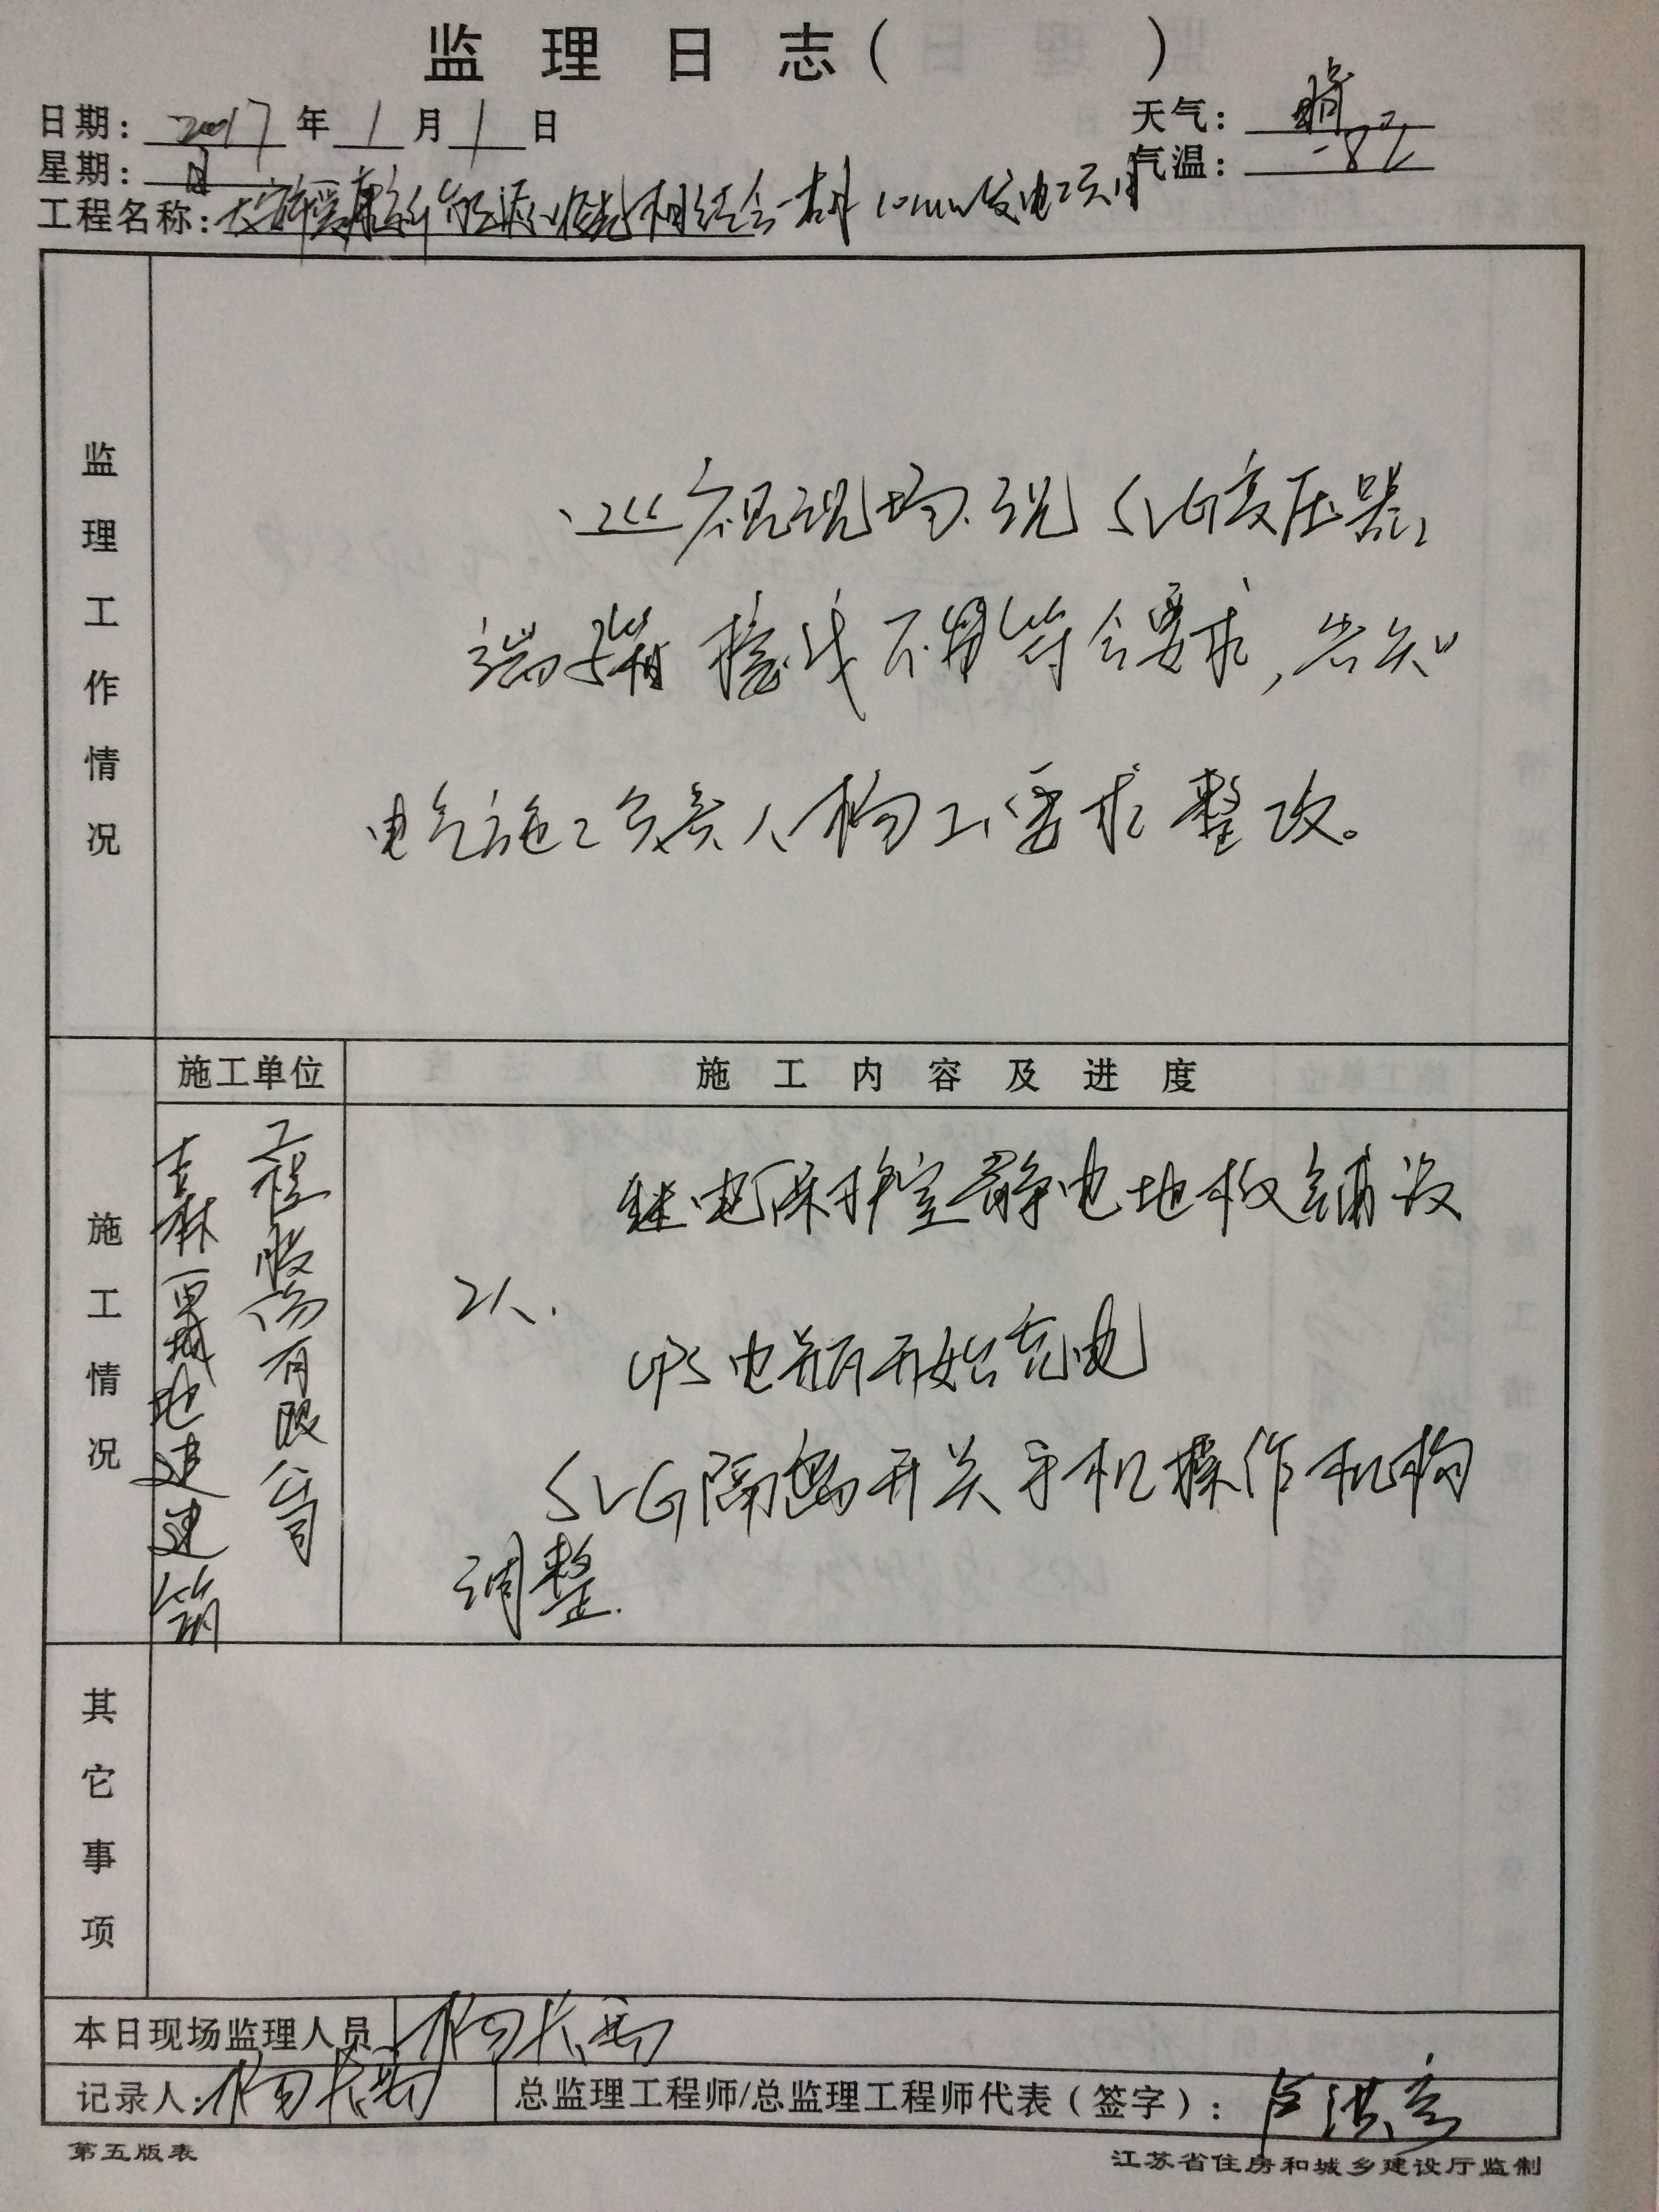 监 理 日 志（ ）
日期： 2017 年 1 月 1 日
天气： 晴
星期： 日
气温： -8℃
工程名称： 大安 新能源 光 相结合 10MW发电项目
监理工作情况
巡视现场, 况 SVG变压器,
端子箱 接线 不 符合要求, 告知
电气施工负责人 要求 整改。
施工单位
施 工 内 容 及 进 度
施工情况
吉林 地建建筑
工程股份有限公司
继电保护室静电地板铺设
2人.
UPS 电瓶开始充电
SVG隔离开关手机操作机构
调整.
其它事项
本日现场监理人员 杨长
记录人： 杨长
总监理工程师/总监理工程师代表（签字）： 卢洪
第五版表
江苏省住房和城乡建设厅监制